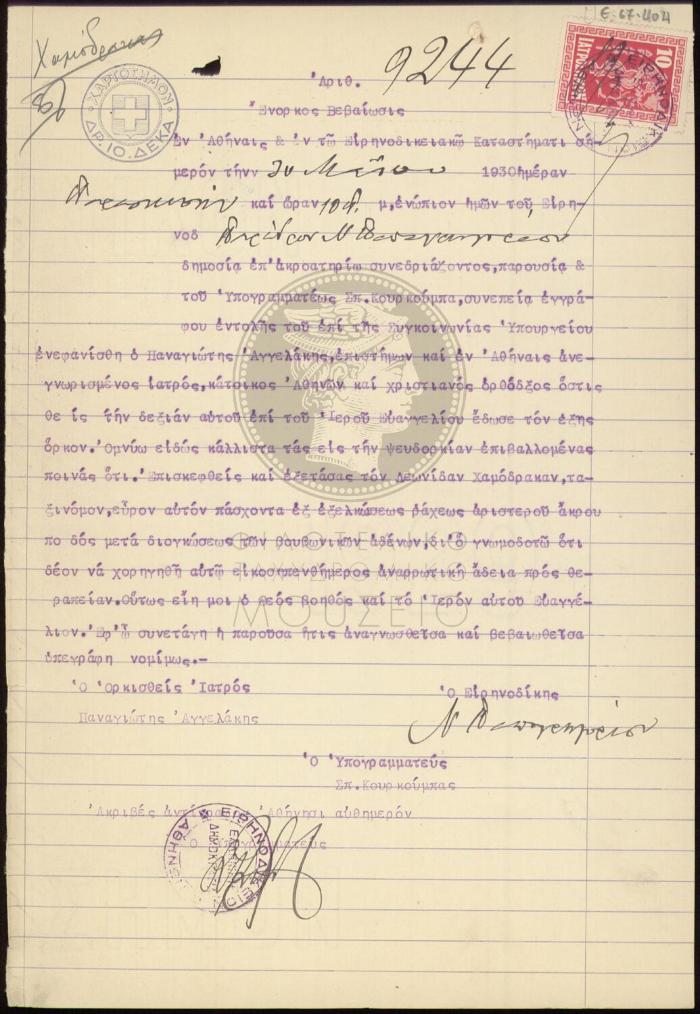 Ε-67-404
Χαμόδρακας
Ἀριθ. 9244
10
ΧΑΡΤΟΣΗΜΟΝ
ΔΡ.ΙΟ.ΔΕΚΑ
Ἔνορκος Βεβαίωσις
Ἐν Ἀθήναις & ἐν τῷ Εἰρηνοδικειακῷ Καταστήματι σή
μερόν τήνν 30 Μαΐου 1930 ἡμέραν
Παρασκευήν καί ὥραν 10 π. μ, ἐνώπιον ἡμῶν τοῦ Εἰρη-
νοδ Ν Παπαγρηγορίου
δημοσίᾳ ἐπ' ἀκροατηρίῳ συνεδριάζοντος, παρουσίᾳ &
τοῦ Ὑπογραμματέως Σπ. Κουρκούμπα, συνεπείᾳ ἐγγρά-
φου ἐντολῆς τοῦ ἐπί τῆς Συγκοινωνίας Ὑπουργείου
ἐνεφανίσθη ὁ Παναγιώτης Ἀγγελάκης, ἐπιστήμων καί ἐν Ἀθήναις ἀνε-
γνωρισμένος ἰατρός, κάτοικος Ἀθηνῶν καί χριστιανός ὀρθόδξος ὅστις
θε ίς τήν δεξιάν αὐτοῦ ἐπί τοῦ Ἱεροῦ Εὐαγγελίου ἔδωσε τόν ἑξῆς
ὅρκον. Ὀμνύω εἰδώς κάλλιστα τάς εἰς τήν ψευδορκίαν ἐπιβαλλομένας
ποινάς ὅτι. Ἐπισκεφθείς καί ἐξετάσας τόν Λεωνίδαν Χαμόδρακαν, τα-
ξινόμον, εὗρον αὐτόν πάσχοντα ἐξ ἐξελκώσεως ῥάχεως ἀριστεροῦ ἄκρου
πο δός μετά διογκώσεως τῶν βουβωνικῶν ἀδένων, δι' ὅ γνωμοδοτῶ ὅτι
δέον νά χορηγηθῇ αὐτῷ εἰκοσιπενθήμερος ἀναρρωτική ἄδεια πρός θε-
ραπείαν. Οὕτως εἴη μοι ὁ θεός βοηθός καί τό Ἱερόν αὐτοῦ Εὐαγγέ-
λιον. Ἐφ' ᾧ συνετάγη ἡ παροῦσα ἥτις ἀναγνωσθεῖσα καί βεβαιωθεῖσα
ὑπεγράφη νομίμως.-
Ὁ Ὁρκισθείς Ἰατρός Ὁ Εἰρηνοδίκης
Παναγιώτης Ἀγγελάκης Ν Παπαγρηγορίου
Ὁ Ὑπογραμματεύς
Σπ. Κουρκούμπας
Ἀκριβές ἀντίγραφον Ἀθήνησι αὐθημερόν
Ὁ Ὑπογραμματεύς